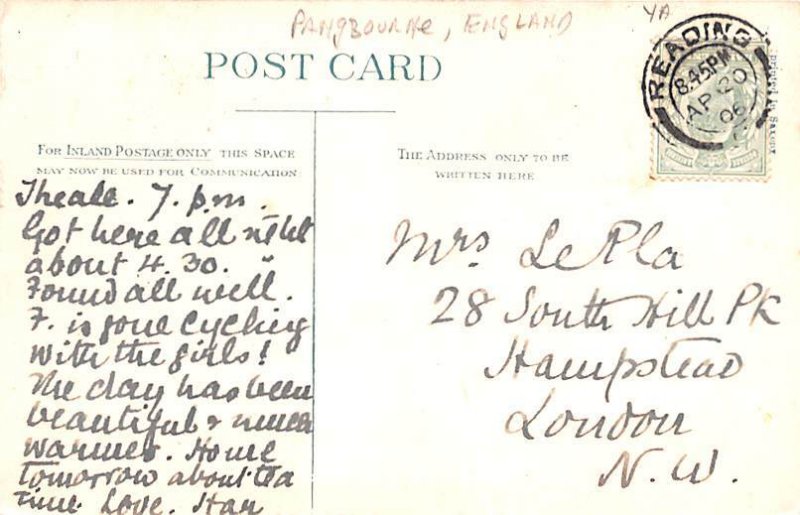 PANGBOURNE, ENGLAND
YA
POST CARD
READING
8.45PM
AP 20
06
Printed in Saxony
FOR INLAND POSTAGE ONLY THIS SPACE
MAY NOW BE USED FOR COMMUNICATION
THE ADDRESS ONLY TO BE
WRITTEN HERE
Theale. 7. p.m.
Got here all right
about 4.30.
Found all well.
F. is gone cycling
with the girls!
The day has been
beautiful & much
warmer. Home
tomorrow about tea
time. Love.
Mrs. LePla
28 South Hill Pk
Hampstead
London
N.W.